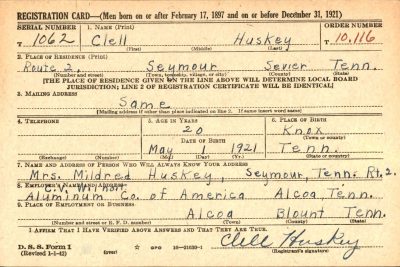 REGISTRATION CARD—(Men born on or after February 17, 1897 and on or before December 31, 1921)
SERIAL NUMBER 1. NAME (Print) ORDER NUMBER
T 1062 Clell Huskey T 10,116
(First) (Middle) (Last)
2. PLACE OF RESIDENCE (Print)
Route 2, Seymour Sevier Tenn.
(Number and street) (Town, township, village, or city) (County) (State)
[THE PLACE OF RESIDENCE GIVEN ON THE LINE ABOVE WILL DETERMINE LOCAL BOARD
JURISDICTION; LINE 2 OF REGISTRATION CERTIFICATE WILL BE IDENTICAL]
3. MAILING ADDRESS
Same
[Mailing address if other than place indicated on line 2. If same insert word same]
4. TELEPHONE 5. AGE IN YEARS 6. PLACE OF BIRTH
20 Knox
DATE OF BIRTH (Town or county)
May 1 1921 Tenn.
(Exchange) (Number) (Mo.) (Day) (Yr.) (State or country)
7. NAME AND ADDRESS OF PERSON WHO WILL ALWAYS KNOW YOUR ADDRESS
Mrs. Mildred Huskey, Seymour, Tenn. Rt. 2.
8. EMPLOYER'S NAME AND ADDRESS
Aluminum Co. of America Alcoa, Tenn.
9. PLACE OF EMPLOYMENT OR BUSINESS
Alcoa Blount Tenn.
(Number and street or R. F. D. number) (Town) (County) (State)
I AFFIRM THAT I HAVE VERIFIED ABOVE ANSWERS AND THAT THEY ARE TRUE.
D. S. S. Form 1
(Revised 1-1-42) (over) GPO 16—21630-1 Clell Huskey
(Registrant's signature)